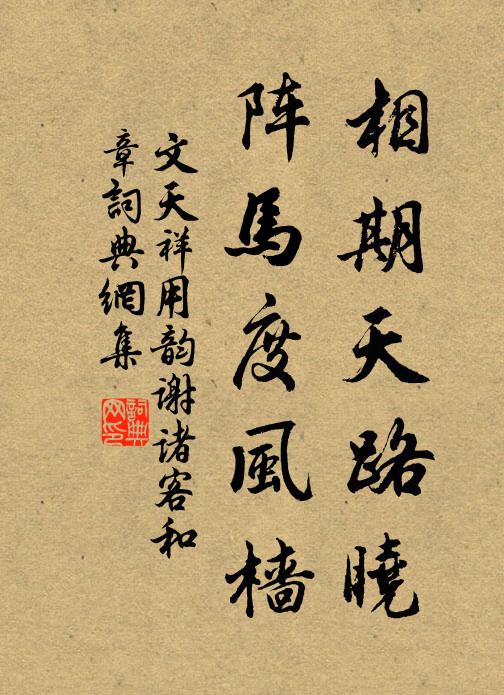 相期天路曉
阵馬度風檣
文天祥用韵谢诸客和
章詞典網集
詞典网印